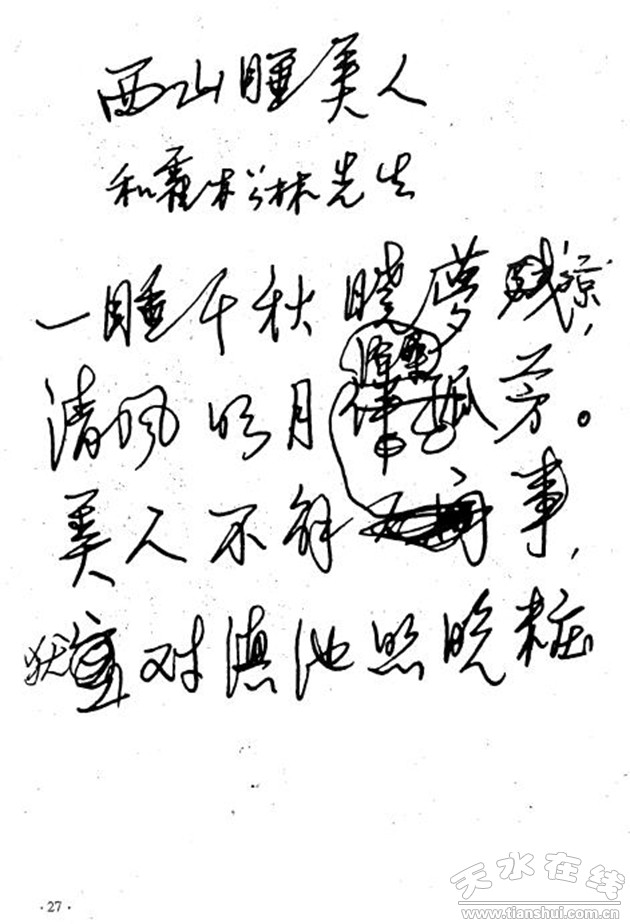 西山睡美人
和霍松林先生
一睡千秋晓梦凉,
清风明月伴孤芳。
美人不解事,
犹对滇池照晚粧
·27·
天水在线
www.tianshui.com.cn